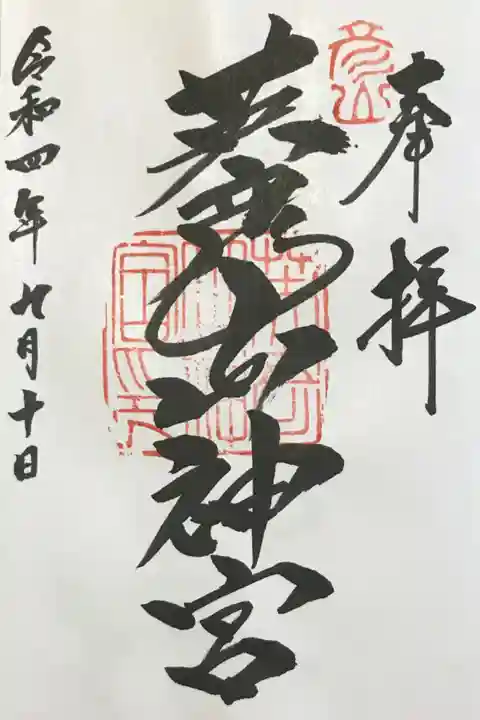 奉拝
彦山
英彦山神宮
令和四年九月十日